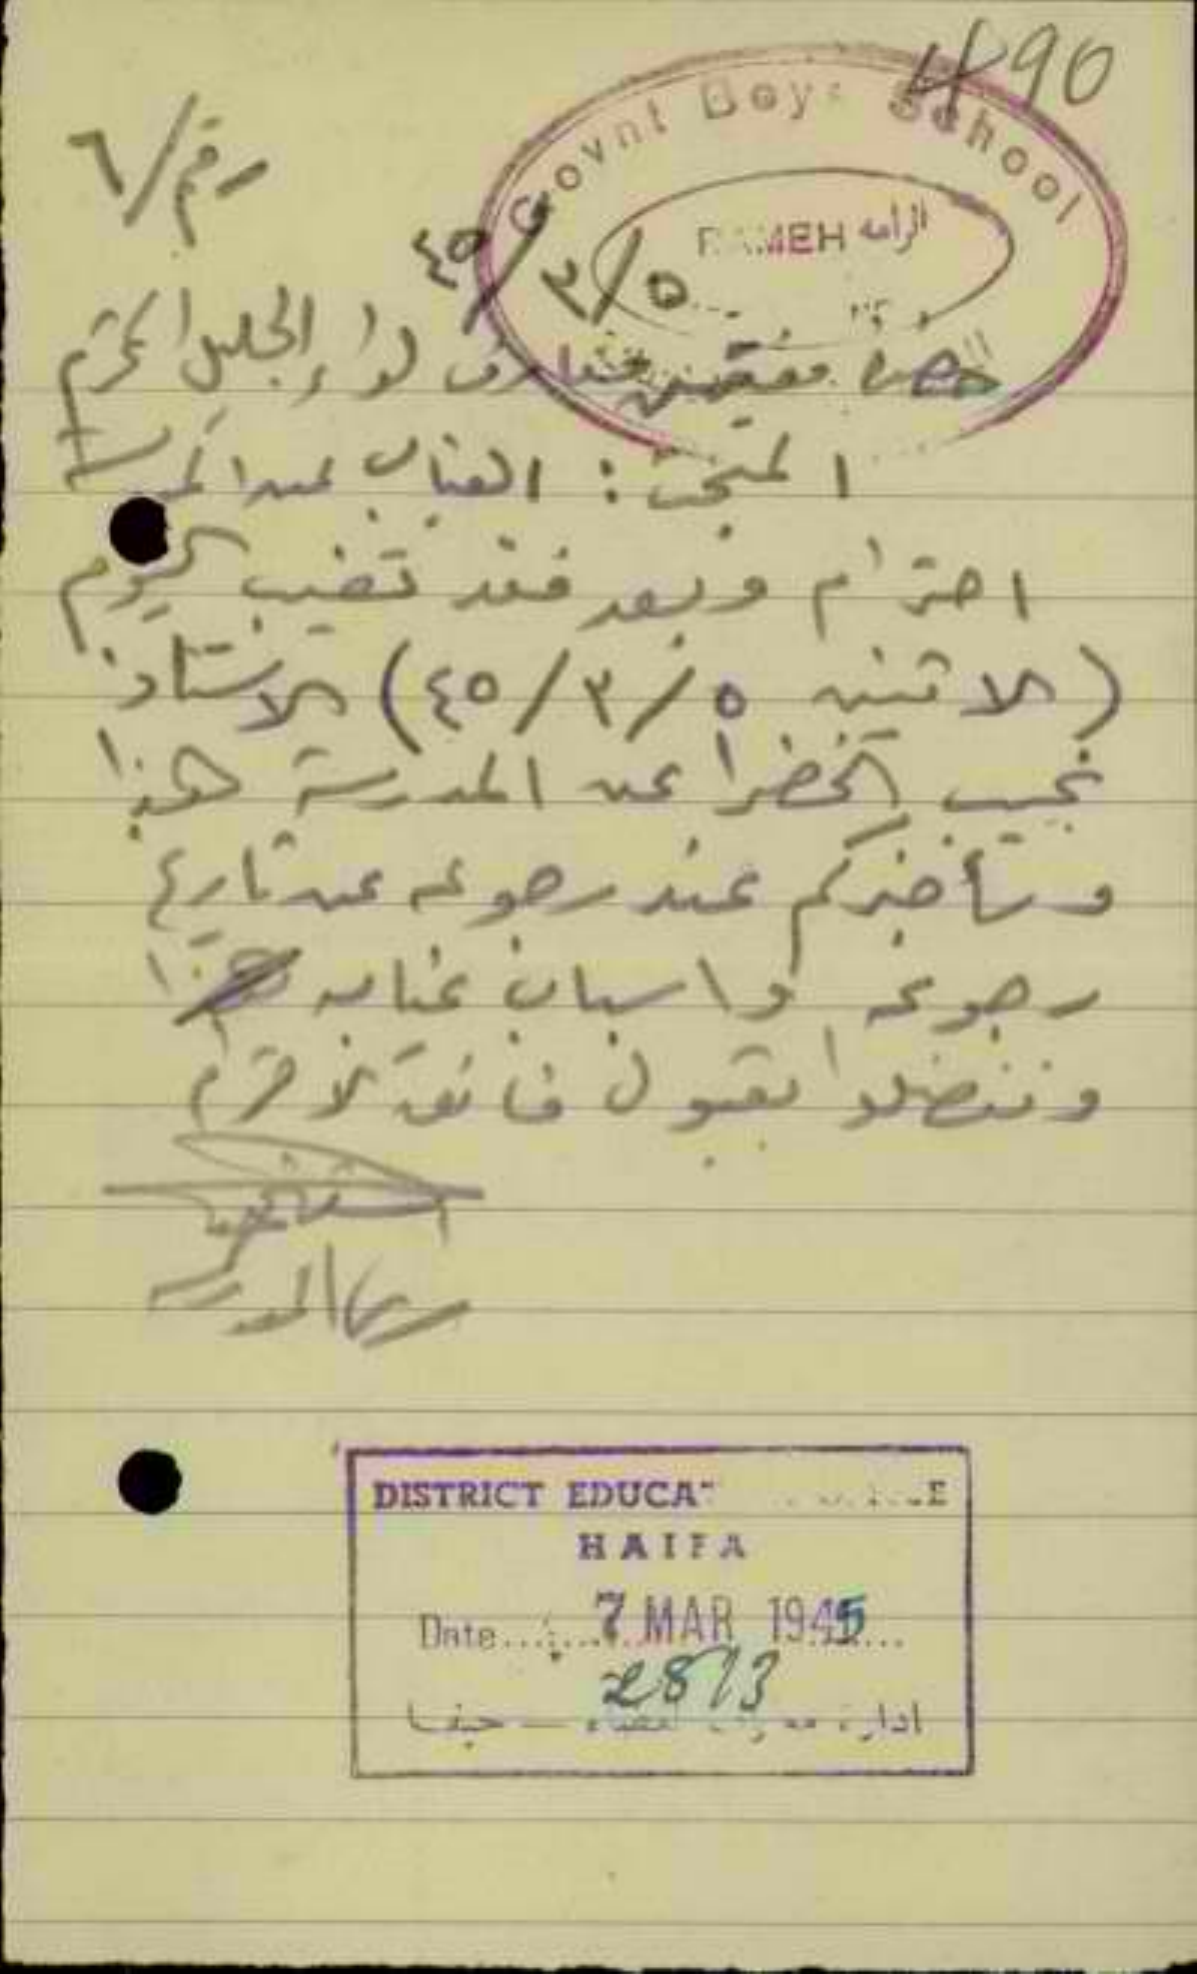 490
Govnt Boys School
RAMEH الرامه
رقم/٦
٤٥/٣/٥
حضرة مفتش معارف لواء الجليل المحترم
المبحث: الغياب عن المدرسة
احترام وبعد فقد تغيب اليوم
(الاثنين ٤٥/٣/٥) الاستاذ
نجيب الخضرا عن المدرسة هذا
وسأخبركم عند رجوعه عن تاريخ
رجوعه واسباب غيابه هذا
وتفضلوا بقبول فائق الاحترام
مدير المدرسة
DISTRICT EDUCAT
HAIFA
Date 7 MAR 1945
2873
ادارة معارف القضاء — حيفا